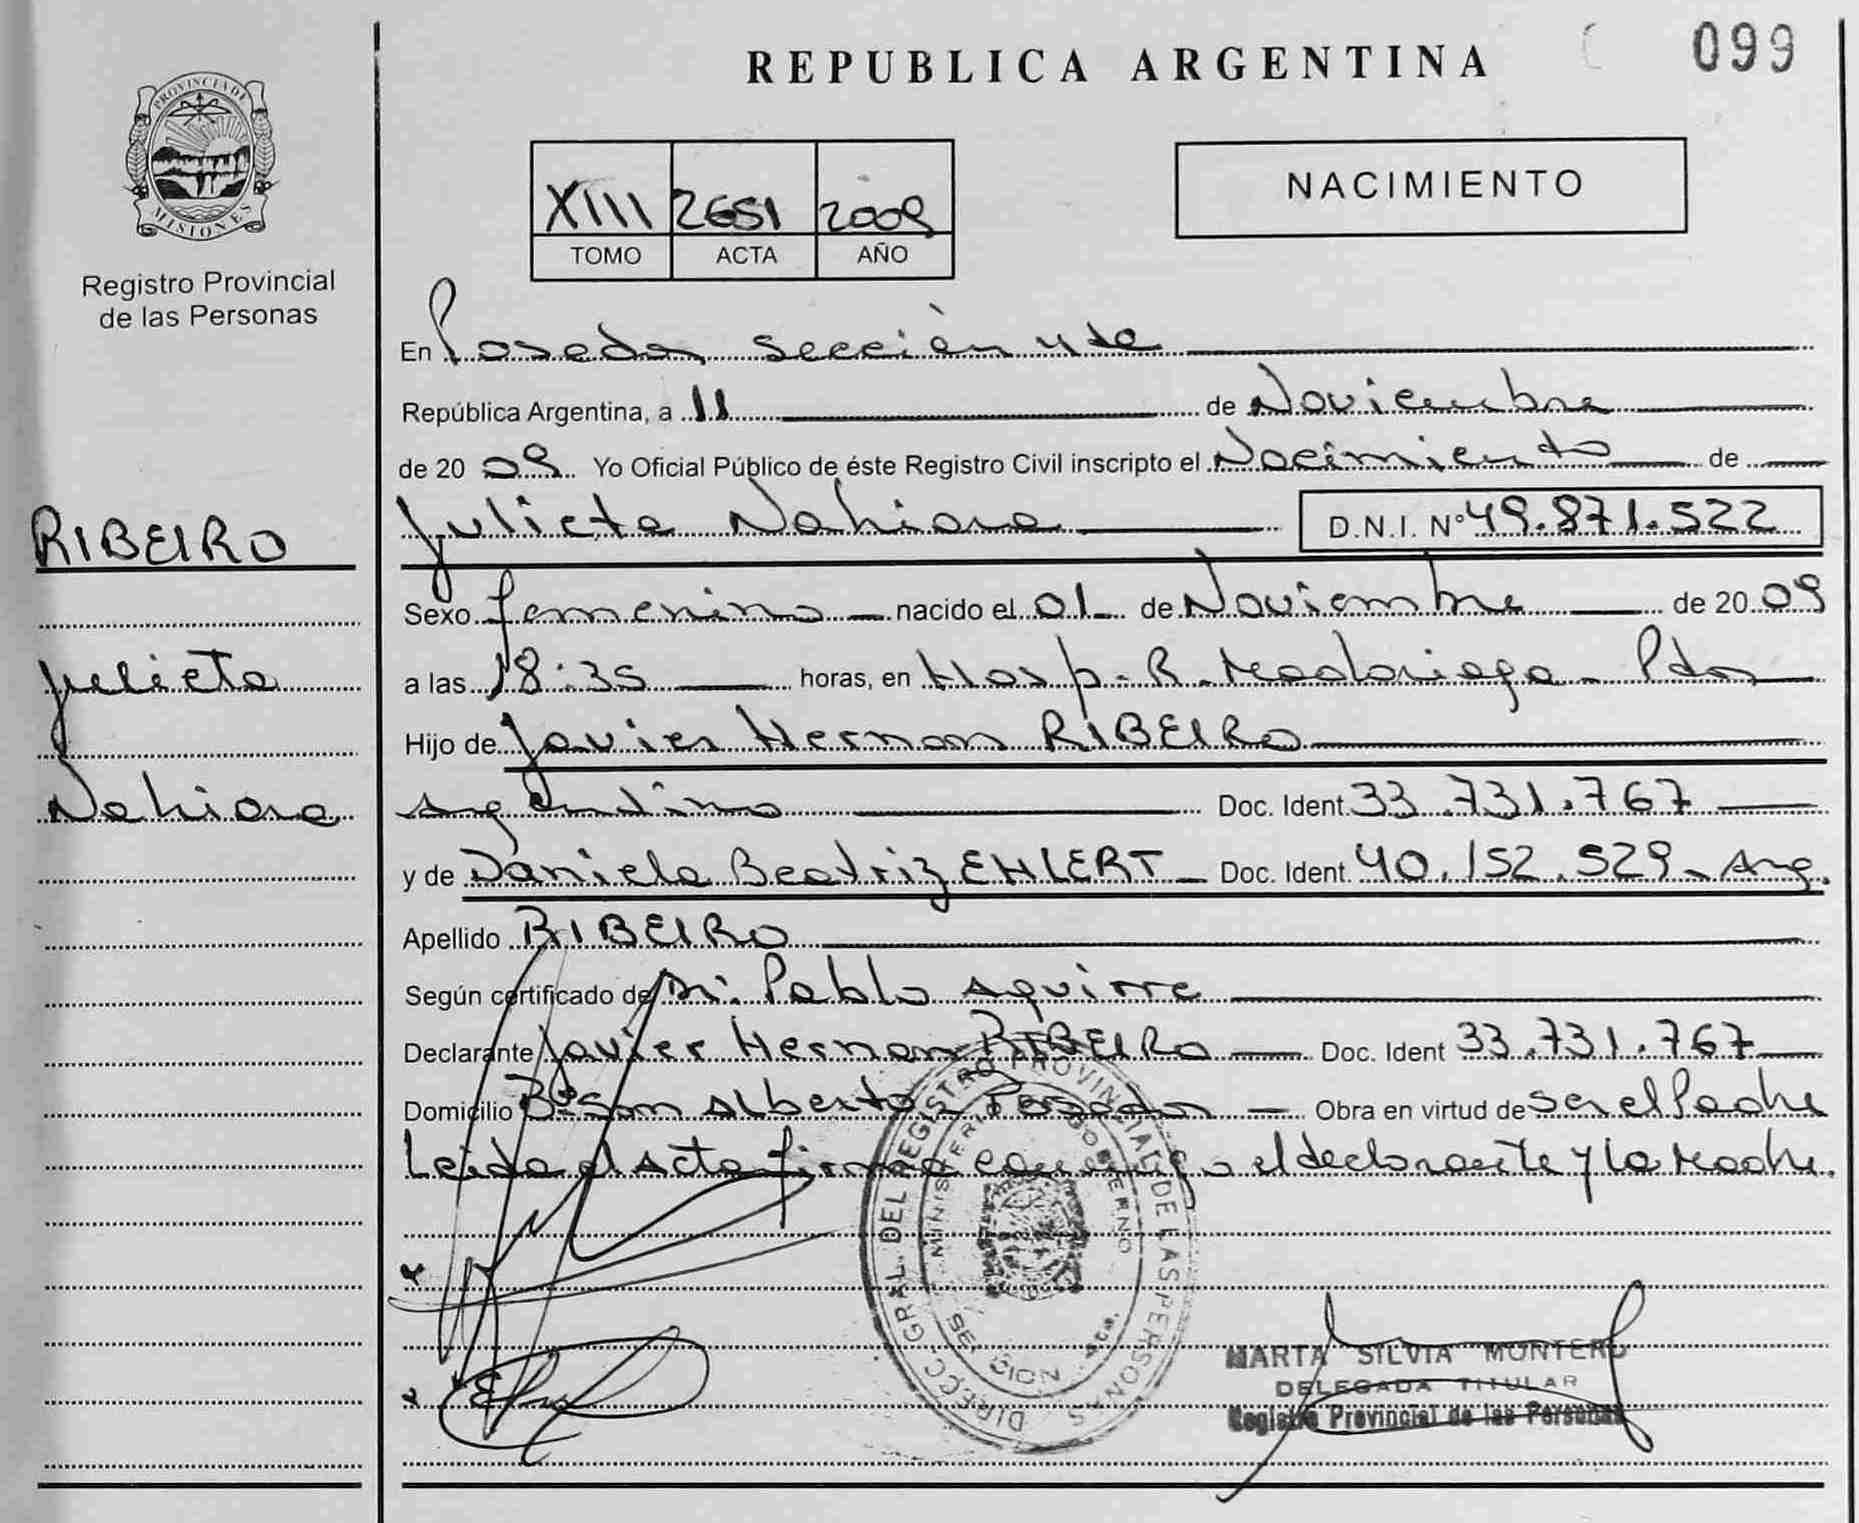 REPUBLICA ARGENTINA
099
PROVINCIA DE MISIONES
Registro Provincial
de las Personas
XIII 2651 2009
TOMO ACTA AÑO
NACIMIENTO
En Posadas sección 4ta
República Argentina, a 11 de Noviembre
de 2009 Yo Oficial Público de éste Registro Civil inscripto el Nacimiento de
Julieta Nahiara D.N.I. N° 49.871.522
RIBEIRO
Julieta
Nahiara
Sexo femenino nacido el 01 de Noviembre de 2009
a las 18:35 horas, en Hosp. R. Madariaga - Pdas
Hijo de Javier Hernan RIBEIRO
Argentino Doc. Ident. 33.731.767
y de Daniela Beatriz EHLERT - Doc. Ident. 40.152.529 - Arg.
Apellido RIBEIRO
Según certificado de Dr. Pablo Aguirre
Declarante Javier Hernan RIBEIRO Doc. Ident 33.731.767
Domicilio Bº San Alberto - Posadas - Obra en virtud de ser el Padre
Leida el Acta firma conmigo el declarante y la Madre.
DIRECC. GRAL. DEL REGISTRO PROVINCIAL DE LAS PERSONAS
MINISTERIO GOBIERNO
SECCION 4ta.
MARTA SILVIA MONTERO
DELEGADA TITULAR
Registro Provincial de las Personas